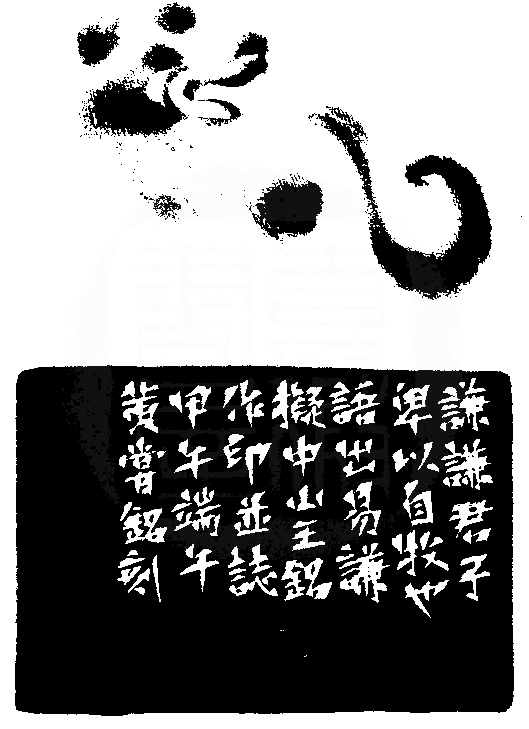 謙謙君子
卑以自牧也
語出易謙
擬中山王銘
作印並誌
甲午端午
黄嘗銘刻